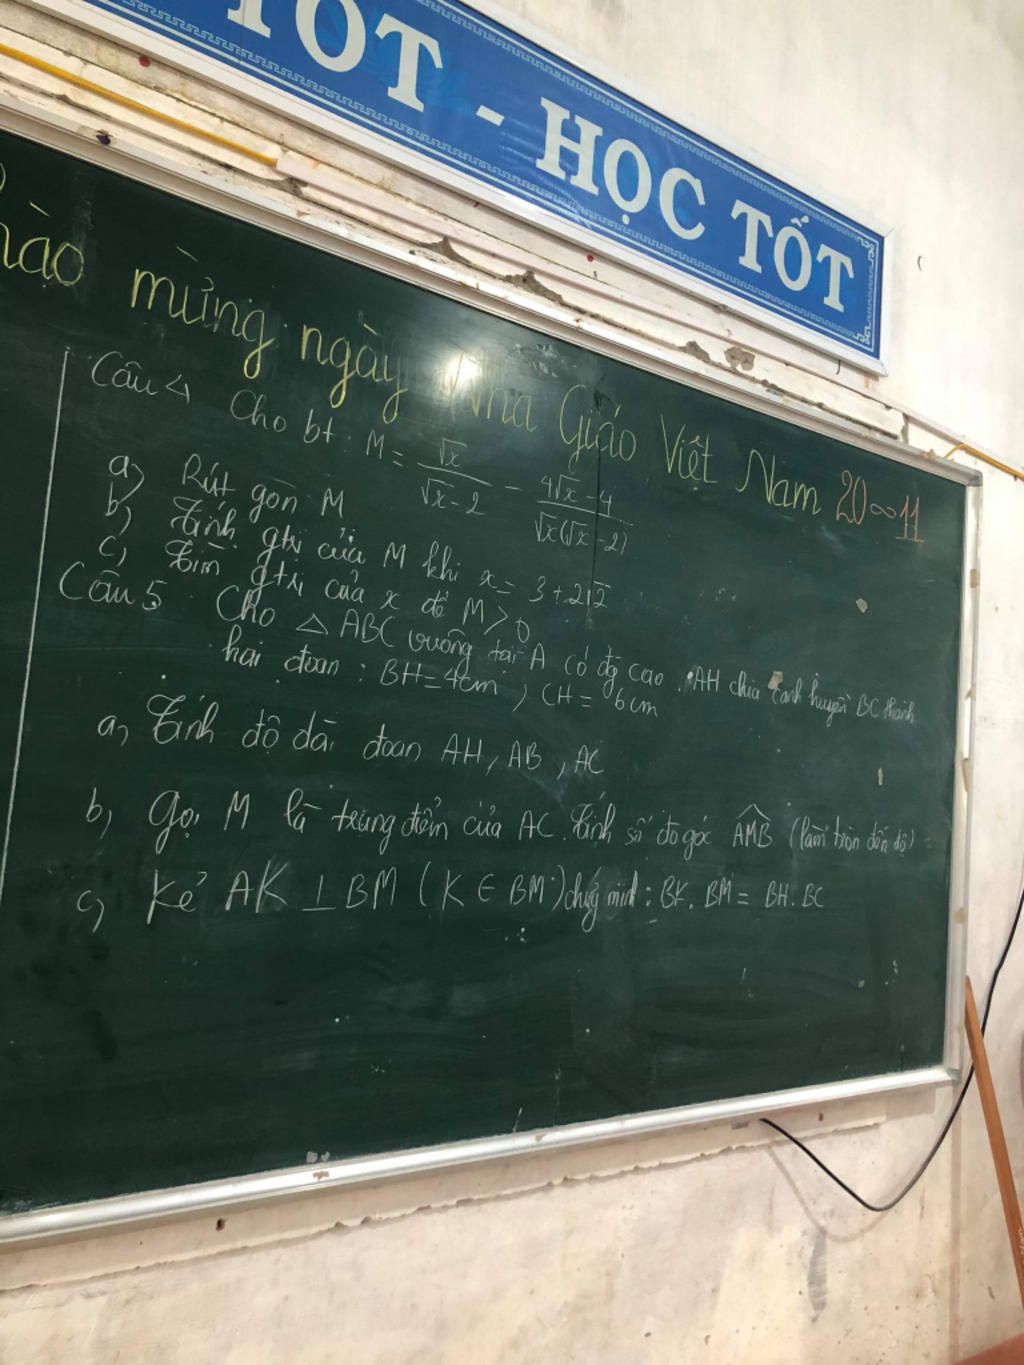 TỐT - HỌC TỐT
hào mừng ngày Nhà Giáo Việt Nam 20~11
Câu 4 Cho bt: M = √x / (√x - 2) - (4√x - 4) / (√x(√x - 2))
a) Rút gọn M
b) Tính gtrị của M khi x = 3 + 2√2
c) Tìm gtrị của x để M > 0
Câu 5 Cho △ ABC vuông tại A có đg cao AH chia cạnh huyền BC thành
hai đoạn: BH = 4cm, CH = 6cm
a, Tính độ dài đoạn AH, AB, AC
b, Gọi M là trung điểm của AC. Tính số đo góc AMB (làm tròn đến độ)
c, Kẻ AK ⊥ BM (K ∈ BM) chứng minh: BK. BM = BH. BC